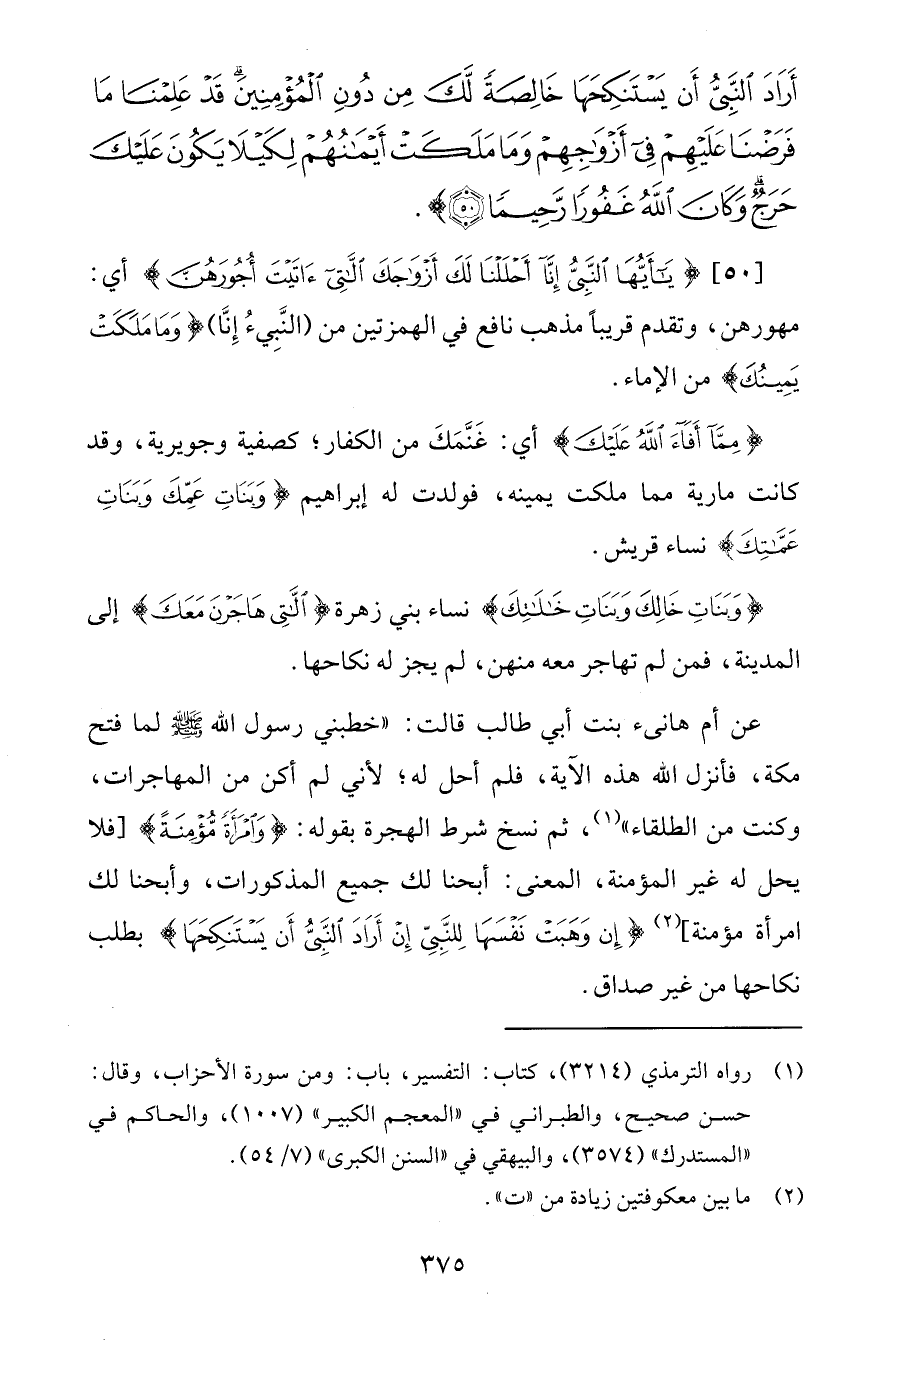 أَرَادَ ٱلنَّبِىُّ أَن يَسْتَنكِحَهَا خَالِصَةً لَّكَ مِن دُونِ ٱلْمُؤْمِنِينَ ۗ قَدْ عَلِمْنَا مَا
فَرَضْنَا عَلَيْهِمْ فِىٓ أَزْوَٰجِهِمْ وَمَا مَلَكَتْ أَيْمَٰنُهُمْ لِكَيْلَا يَكُونَ عَلَيْكَ
حَرَجٌ ۗ وَكَانَ ٱللَّهُ غَفُورًا رَّحِيمًا ﴿٥٠﴾ .
[٥٠] ﴿ يَٰٓأَيُّهَا ٱلنَّبِىُّ إِنَّآ أَحْلَلْنَا لَكَ أَزْوَٰجَكَ ٱلَّٰتِىٓ ءَاتَيْتَ أُجُورَهُنَّ ﴾ أي:
مهورهن، وتقدم قريباً مذهب نافع في الهمزتين من (النَّبِيءُ إِنَّا) ﴿ وَمَا مَلَكَتْ
يَمِينُكَ ﴾ من الإماء .
﴿ مِمَّآ أَفَآءَ ٱللَّهُ عَلَيْكَ ﴾ أي: غَنَّمَكَ من الكفار؛ كصفية وجويرية، وقد
كانت مارية مما ملكت يمينه، فولدت له إبراهيم ﴿ وَبَنَاتِ عَمِّكَ وَبَنَاتِ
عَمَّٰتِكَ ﴾ نساء قريش .
﴿ وَبَنَاتِ خَالِكَ وَبَنَاتِ خَٰلَٰتِكَ ﴾ نساء بني زهرة ﴿ ٱلَّٰتِى هَاجَرْنَ مَعَكَ ﴾ إلى
المدينة، فمن لم تهاجر معه منهن، لم يجز له نكاحها .
عن أم هانىء بنت أبي طالب قالت: «خطبني رسول الله ﷺ لما فتح
مكة، فأنزل الله هذه الآية، فلم أحل له؛ لأني لم أكن من المهاجرات،
وكنت من الطلقاء»(١)، ثم نسخ شرط الهجرة بقوله: ﴿ وَٱمْرَأَةً مُّؤْمِنَةً ﴾ [فلا
يحل له غير المؤمنة، المعنى: أبحنا لك جميع المذكورات، وأبحنا لك
امرأة مؤمنة](٢) ﴿ إِن وَهَبَتْ نَفْسَهَا لِلنَّبِىِّ إِنْ أَرَادَ ٱلنَّبِىُّ أَن يَسْتَنكِحَهَا ﴾ بطلب
نكاحها من غير صداق .
(١) رواه الترمذي (٣٢١٤)، كتاب: التفسير، باب: ومن سورة الأحزاب، وقال:
حسن صحيح، والطبراني في «المعجم الكبير» (١٠٠٧)، والحاكم في
«المستدرك» (٣٥٧٤)، والبيهقي في «السنن الكبرى» (٧/ ٥٤).
(٢) ما بين معكوفتين زيادة من «ت» .
٣٧٥